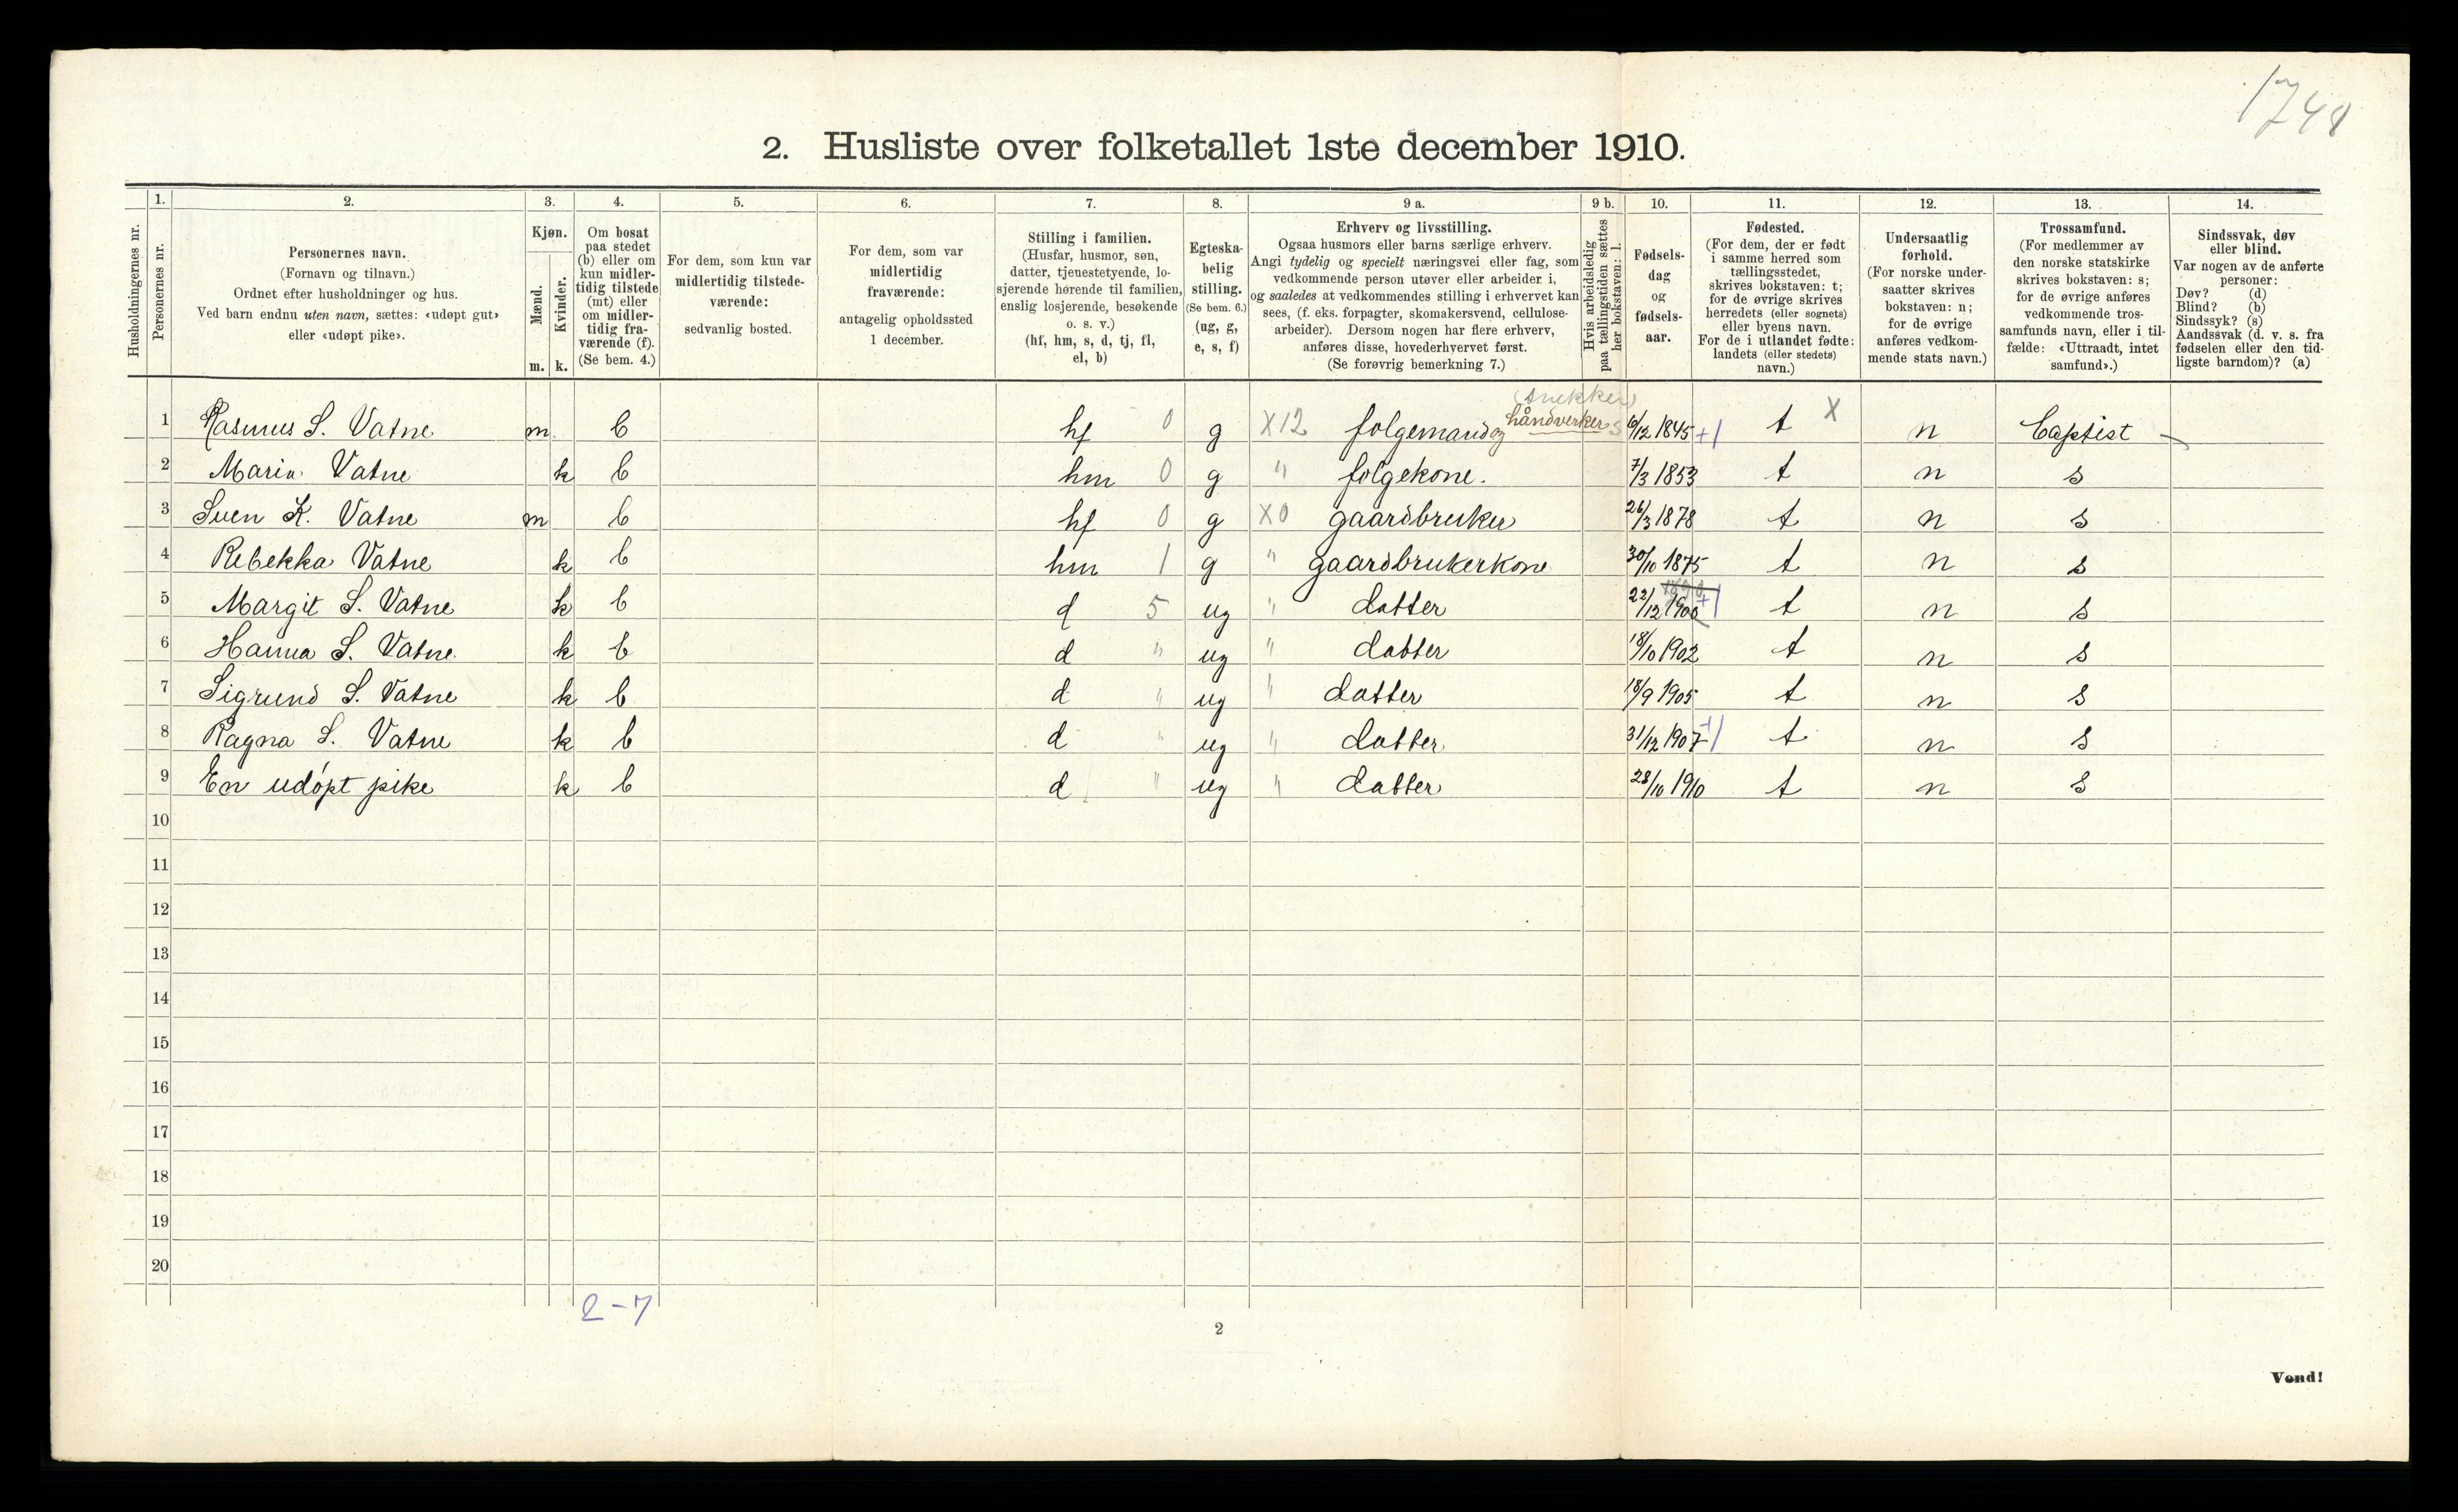 1748
2. Husliste over folketallet 1ste december 1910.
1. 2. 3. 4. 5. 6. 7. 8. 9 a. 9 b. 10. 11. 12. 13. 14.
Husholdningernes nr.
Personernes nr.
Personernes navn.
(Fornavn og tilnavn.)
Ordnet efter husholdninger og hus.
Ved barn endnu uten navn, sættes: «udøpt gut»
eller «udøpt pike».
Kjøn.
Mænd.
Kvinder.
m. k.
Om bosat
paa stedet
(b) eller om
kun midler-
tidig tilstede
(mt) eller
om midler-
tidig fra-
værende (f).
(Se bem. 4.)
For dem, som kun var
midlertidig tilstede-
værende:
sedvanlig bosted.
For dem, som var
midlertidig
fraværende:
antagelig opholdssted
1 december.
Stilling i familien.
(Husfar, husmor, søn,
datter, tjenestetyende, lo-
sjerende hørende til familien,
enslig losjerende, besøkende
o. s. v.)
(hf, hm, s, d, tj, fl,
el, b)
Egteska-
belig
stilling.
(Se bem. 6.)
(ug, g,
e, s, f)
Erhverv og livsstilling.
Ogsaa husmors eller barns særlige erhverv.
Angi tydelig og specielt næringsvei eller fag, som
vedkommende person utøver eller arbeider i,
og saaledes at vedkommendes stilling i erhvervet kan
sees, (f. eks. forpagter, skomakersvend, cellulose-
arbeider). Dersom nogen har flere erhverv,
anføres disse, hovederhvervet først.
(Se forøvrig bemerkning 7.)
Hvis arbeidsledig
paa tællingstiden sættes
her bokstaven: l.
Fødsels-
dag
og
fødsels-
aar.
Fødested.
(For dem, der er født
i samme herred som
tællingsstedet,
skrives bokstaven: t;
for de øvrige skrives
herredets (eller sognets)
eller byens navn.
For de i utlandet fødte:
landets (eller stedets)
navn.)
Undersaatlig
forhold.
(For norske under-
saatter skrives
bokstaven: n;
for de øvrige
anføres vedkom-
mende stats navn.)
Trossamfund.
(For medlemmer av
den norske statskirke
skrives bokstaven: s;
for de øvrige anføres
vedkommende tros-
samfunds navn, eller i til-
fælde: «Uttraadt, intet
samfund».)
Sindssvak, døv
eller blind.
Var nogen av de anførte
personer:
Døv? (d)
Blind? (b)
Sindssyk? (s)
Aandssvak (d. v. s. fra
fødselen eller den tid-
ligste barndom)? (a)
(snekker)
1 Rasmus S. Vatne m b hf 0 g X12 folgemand og håndverker 6/12 1845 +1 t X n Baptist
2 Maria Vatne k b hm 0 g " folgekone. 7/3 1853 t n s
3 Sven K. Vatne m b hf 0 g X0 gaardbruker 26/3 1878 t n s
4 Rebekka Vatne k b hm 1 g " gaardbrukerkone 30/10 1875 t n s
5 Margit S. Vatne k b d 5 ug " datter 22/12 1900 +1 t n s
6 Hanna S. Vatne k b d " ug " datter 18/10 1902 t n s
7 Sigrund S. Vatne k b d " ug " datter 18/9 1905 t n s
8 Ragna S. Vatne k b d " ug " datter 31/12 1907 +1 t n s
9 En udøpt pike k b d " ug " datter 28/10 1910 t n s
10
11
12
13
14
15
16
17
18
19
20
2-7
2
Vend!